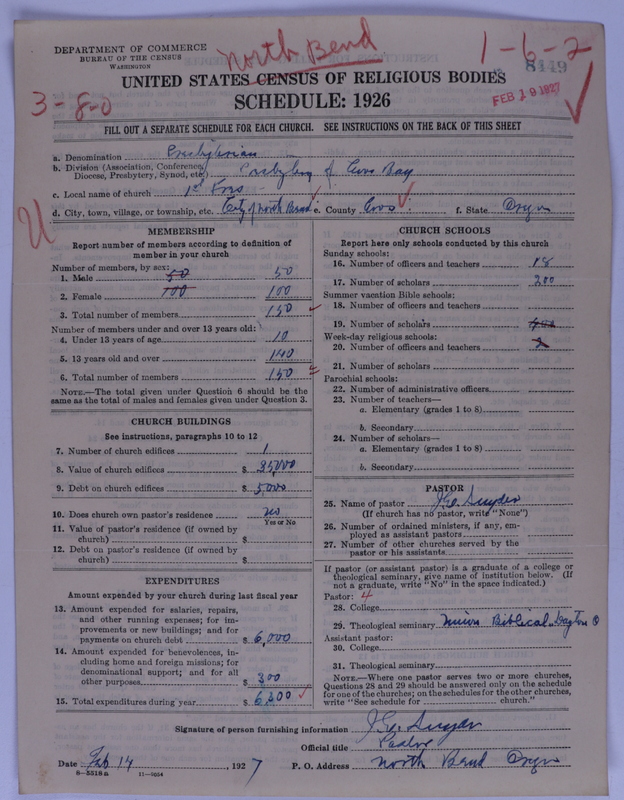 DEPARTMENT OF COMMERCE
BUREAU OF THE CENSUS
WASHINGTON
North Bend
1-6-2
8149
UNITED STATES CENSUS OF RELIGIOUS BODIES
FEB 19 1927
3-8-0
SCHEDULE: 1926
FILL OUT A SEPARATE SCHEDULE FOR EACH CHURCH. SEE INSTRUCTIONS ON THE BACK OF THIS SHEET
a. Denomination Presbyterian
b. Division (Association, Conference, Diocese, Presbytery, Synod, etc.) Presbytery of Coos Bay
c. Local name of church 1st Pres
d. City, town, village, or township, etc. City of North Bend e. County Coos f. State Oregon
U
MEMBERSHIP
Report number of members according to definition of
member in your church
Number of members, by sex:
1. Male 50 50
2. Female 100 100
3. Total number of members 150
Number of members under and over 13 years old:
4. Under 13 years of age 10
5. 13 years old and over 140
6. Total number of members 150
NOTE.—The total given under Question 6 should be the
same as the total of males and females given under Question 3.
CHURCH BUILDINGS
See instructions, paragraphs 10 to 12
7. Number of church edifices 1
8. Value of church edifices $ 35,000
9. Debt on church edifices $ 5,000
10. Does church own pastor's residence? no
Yes or No
11. Value of pastor's residence (if owned by
church) $
12. Debt on pastor's residence (if owned by
church) $
EXPENDITURES
Amount expended by your church during last fiscal year
13. Amount expended for salaries, repairs,
and other running expenses; for im-
provements or new buildings; and for
payments on church debt $ 6,000
14. Amount expended for benevolences, in-
cluding home and foreign missions; for
denominational support; and for all
other purposes $ 300
15. Total expenditures during year $ 6,300
CHURCH SCHOOLS
Report here only schools conducted by this church
Sunday schools:
16. Number of officers and teachers 18
17. Number of scholars 200
Summer vacation Bible schools:
18. Number of officers and teachers
19. Number of scholars
Week-day religious schools:
20. Number of officers and teachers
21. Number of scholars
Parochial schools:
22. Number of administrative officers
23. Number of teachers—
a. Elementary (grades 1 to 8)
b. Secondary
24. Number of scholars—
a. Elementary (grades 1 to 8)
b. Secondary
PASTOR
25. Name of pastor J.G. Snyder
(If church has no pastor, write "None")
26. Number of ordained ministers, if any, em-
ployed as assistant pastors
27. Number of other churches served by the
pastor or his assistants
If pastor (or assistant pastor) is a graduate of a college or
theological seminary, give name of institution below. (If
not a graduate, write "No" in the space indicated.)
Pastor: 4
28. College
29. Theological seminary Union Biblical Dayton O
Assistant pastor:
30. College
31. Theological seminary
NOTE.—Where one pastor serves two or more churches,
Questions 28 and 29 should be answered only on the schedule
for one of the churches; on the schedules for the other churches,
write "See schedule for church."
Signature of person furnishing information J.G. Snyder
Official title Pastor
Date Feb 14, 1927 P. O. Address North Bend Oregon
8-5518a 11-9054